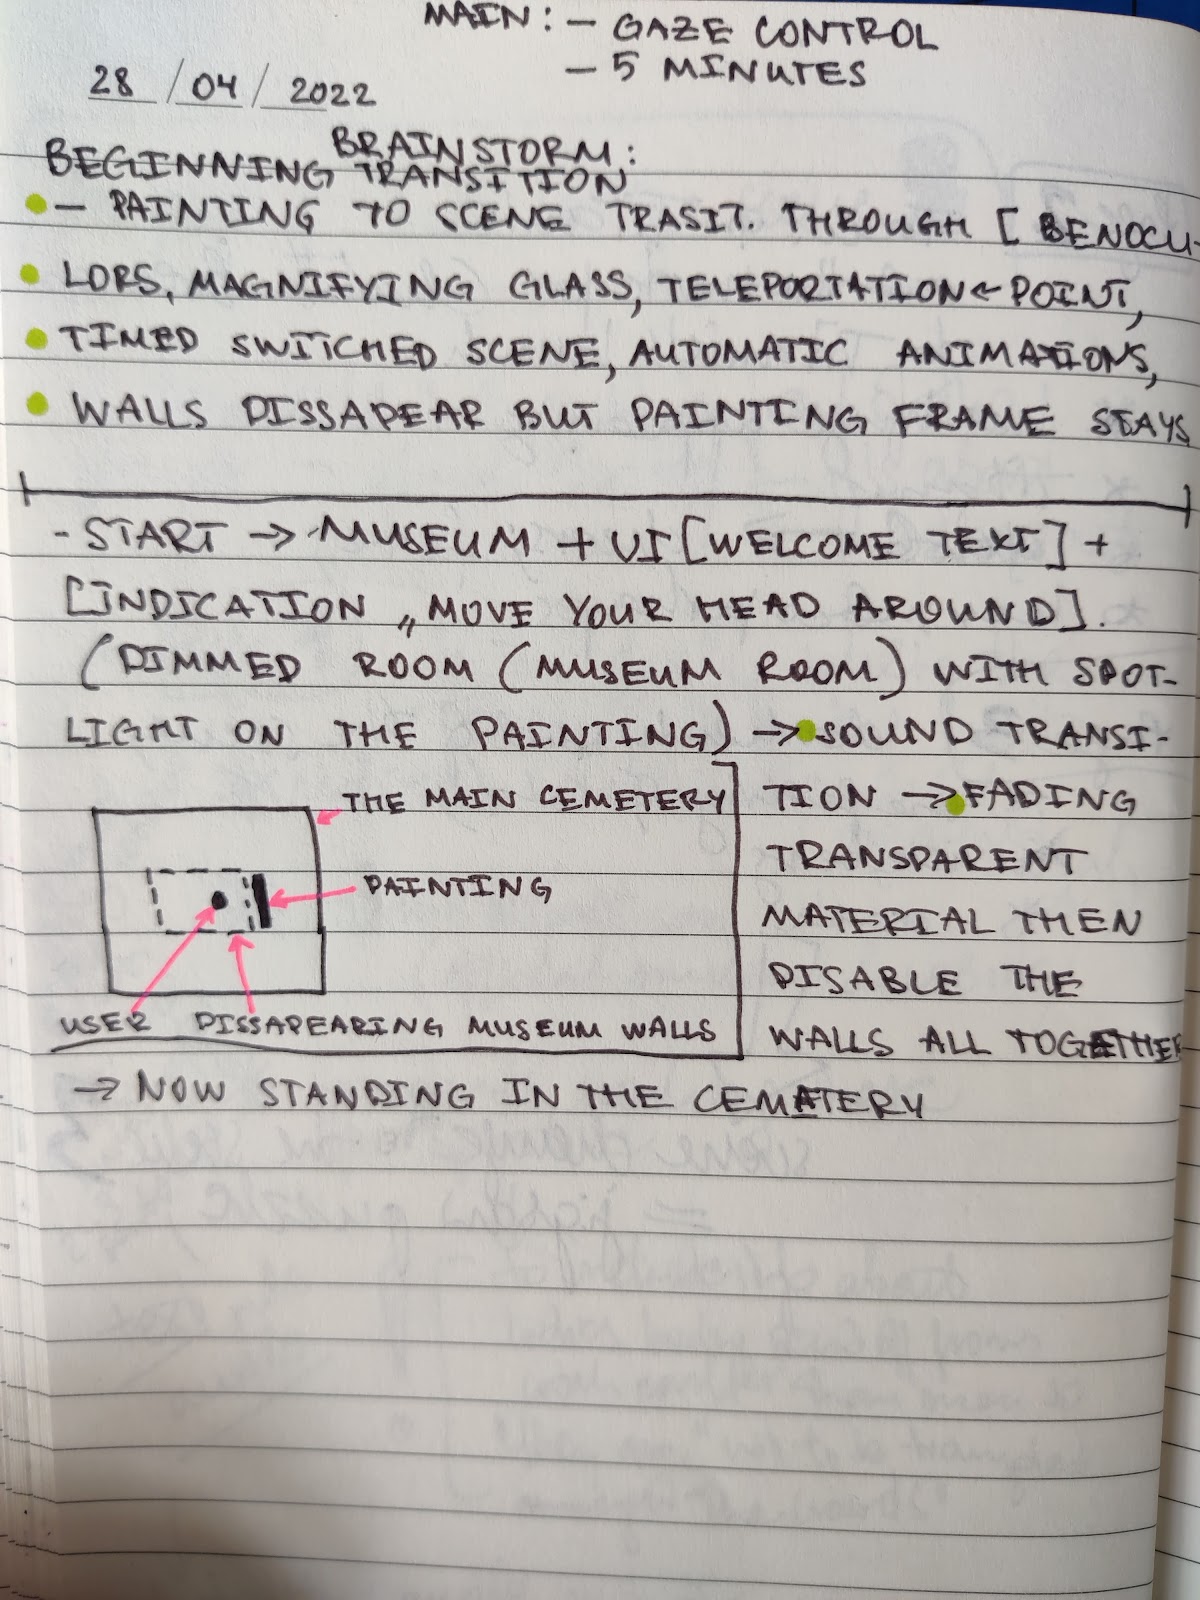 MAIN: - GAZE CONTROL
- 5 MINUTES
28 / 04 / 2022
BRAINSTORM:
BEGINNING TRANSITION
- PAINTING TO SCENE TRASIT. THROUGH [ BENOCU-
LORS, MAGNIFYING GLASS, TELEPORTATION ← POINT,
TIMED SWITCHED SCENE, AUTOMATIC ANIMATIONS,
WALLS DISSAPEAR BUT PAINTING FRAME STAYS
- START → MUSEUM + UI [WELCOME TEXT] +
[INDICATION „MOVE YOUR HEAD AROUND].
(DIMMED ROOM (MUSEUM ROOM) WITH SPOT-
LIGHT ON THE PAINTING) → SOUND TRANSI-
TION → FADING
TRANSPARENT
MATERIAL THEN
DISABLE THE
WALLS ALL TOGETHER
THE MAIN CEMETERY
PAINTING
USER DISSAPEARING MUSEUM WALLS
→ NOW STANDING IN THE CEMETERY